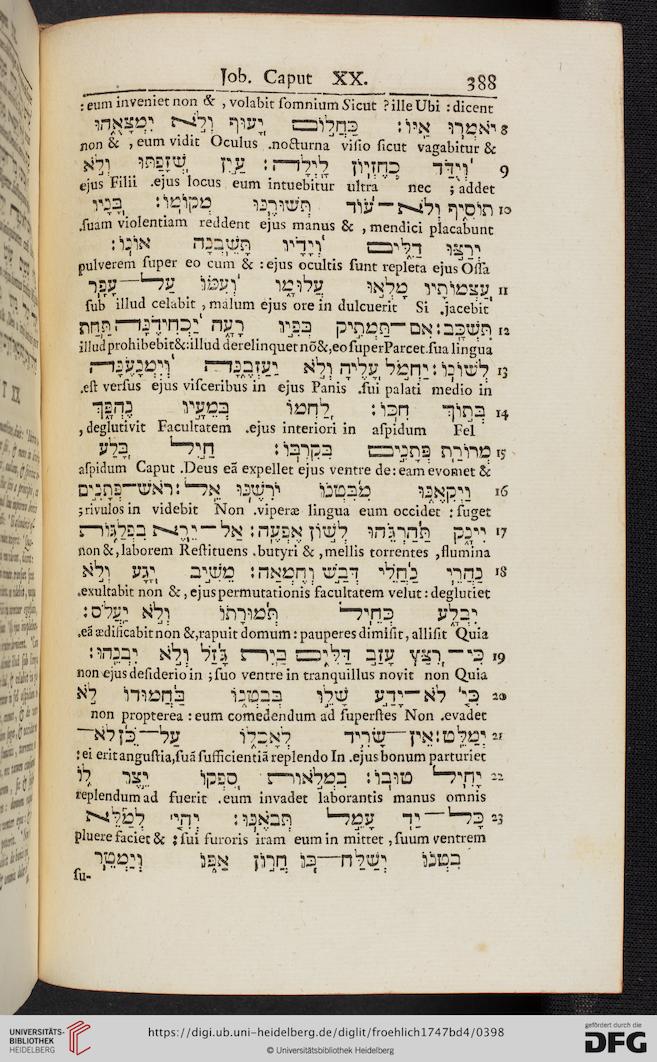 Job. Caput XX. 388
: eum inveniet non & , volabit somnium Sicut ? ille Ubi : dicent
8 יֹאמְר֣וּ אַיּֽוֹ : כַּחֲל֣וֹם יָ֭עוּף וְלֹ֣א יִמְצָאֻ֑הוּ
non & , eum vidit Oculus .nocturna visio sicut vagabitur &
9 וְ֝יֻדַּ֗ד כְּחֶזְי֥וֹן לָֽיְלָה : עַ֣יִן שְׁ֭זָפַתּוּ וְלֹ֣א
ejus Filii .ejus locus eum intuebitur ultra nec ; addet
10 תוֹסִ֑יף וְלֹא־ע֝֗וֹד תְּשׁוּרֶ֥נּוּ מְקוֹמֽוֹ : בָּ֭נָיו
.suam violentiam reddent ejus manus & , mendici placabunt
יְרַצּ֣וּ דַלִּ֑ים וְ֝יָדָ֗יו תָּשֵׁ֥בְנָה אוֹנֽוֹ :
pulverem super eo cum & : ejus ocultis sunt repleta ejus Ossa
11 עַ֭צְמוֹתָיו מָלְא֣וּ עֲלוּמָ֑ו וְ֝עִמּ֗וֹ עַל־עָפָ֥ר
sub illud celabit , malum ejus ore in dulcuerit Si .jacebit
12 תִּשְׁכָּֽב : אִם־תַּמְתִּ֣יק בְּפִ֣יו רָעָ֑ה יַ֝כְחִידֶ֗נָּה תַּ֣חַת
illud prohibebit&:illud derelinquet nō&,eo super Parcet.sua lingua
13 לְשׁוֹנֽוֹ : יַחְמֹ֣ל עָ֭לֶיהָ וְלֹ֣א יַֽעַזְבֶ֑נָּה וְ֝יִמְנָעֶ֗נָּה
.est versus ejus visceribus in ejus Panis .sui palati medio in
14 בְּת֣וֹךְ חִכּֽוֹ : לַ֭חְמוֹ בְּמֵעָ֣יו נֶהְפָּ֑ךְ
, deglutivit Facultatem .ejus interiori in aspidum Fel
15 מְרוֹרַ֖ת פְּתָנִ֣ים בְּקִרְבּֽוֹ : חַ֣יִל בָּ֭לַע
aspidum Caput .Deus eã expellet ejus ventre de : eam evomet &
16 וַיְקִאֶ֑נּוּ מִ֝בִּטְנ֗וֹ יוֹרִשֶׁ֥נּוּ אֵֽל : רֹאשׁ־פְּתָנִ֥ים
; rivulos in videbit Non .viperæ lingua eum occidet : suget
17 יִינָ֑ק תַּ֝הַרְגֵ֗הוּ לְשׁ֣וֹן אֶפְעֶֽה : אַל־יֵ֥רֶא בִפְלַגּ֑וֹת
non &, laborem Restituens .butyri & , mellis torrentes , flumina
18 נַהֲרֵ֥י נַ֝חֲלֵ֗י דְּבַ֣שׁ וְחֶמְאָֽה : מֵשִׁ֣יב יָ֭גָע וְלֹ֣א
.exultabit non & , ejus permutationis facultatem velut : deglutiet
יִבְלָ֑ע כְּחֵ֥יל תְּ֝מוּרָת֗וֹ וְלֹ֣א יַעֲלֹֽס :
.eã ædificabit non &,rapuit domum : pauperes dimisit , allisit Quia
19 כִּֽי־רִ֭צַּץ עָזַ֣ב דַּלִּ֑ים בַּ֥יִת גָּ֝זַ֗ל וְלֹ֣א יִבְנֵֽהוּ :
non ejus desiderio in ; suo ventre in tranquillus novit non Quia
20 כִּ֤י לֹא־יָדַ֣ע שָׁלֵ֣ו בְּבִטְנ֑וֹ בַּ֝חֲמוּד֗וֹ לֹ֣א
non propterea : eum comedendum ad superstes Non .evadet
21 יְמַלֵּֽט : אֵין־שָׂרִ֥יד לְאָכְל֑וֹ עַל־כֵּ֝֗ן לֹא־
: ei erit angustia,suã sufficientiã replendo In .ejus bonum parturiet
22 יָחִ֥יל טוּבֽוֹ : בִּמְלֹ֣אות סִ֭פְקוֹ יֵ֣צֶר ל֑וֹ
replendum ad fuerit .eum invadet laborantis manus omnis
23 כָּל־יַ֖ד עָמֵ֣ל תְּבֹאֶֽנּוּ : יְהִ֤י לְמַלֵּ֬א
pluere faciet & : sui furoris iram eum in mittet , suum ventrem
בִטְנ֗וֹ יְֽשַׁלַּח־בּ֭וֹ חֲר֣וֹן אַפּ֑וֹ וְיַמְטֵ֥ר
su-
UNIVERSITÄTS-
BIBLIOTHEK
HEIDELBERG
https://digi.ub.uni-heidelberg.de/diglit/froehlich1747bd4/0398
© Universitätsbibliothek Heidelberg
gefördert durch die
DFG